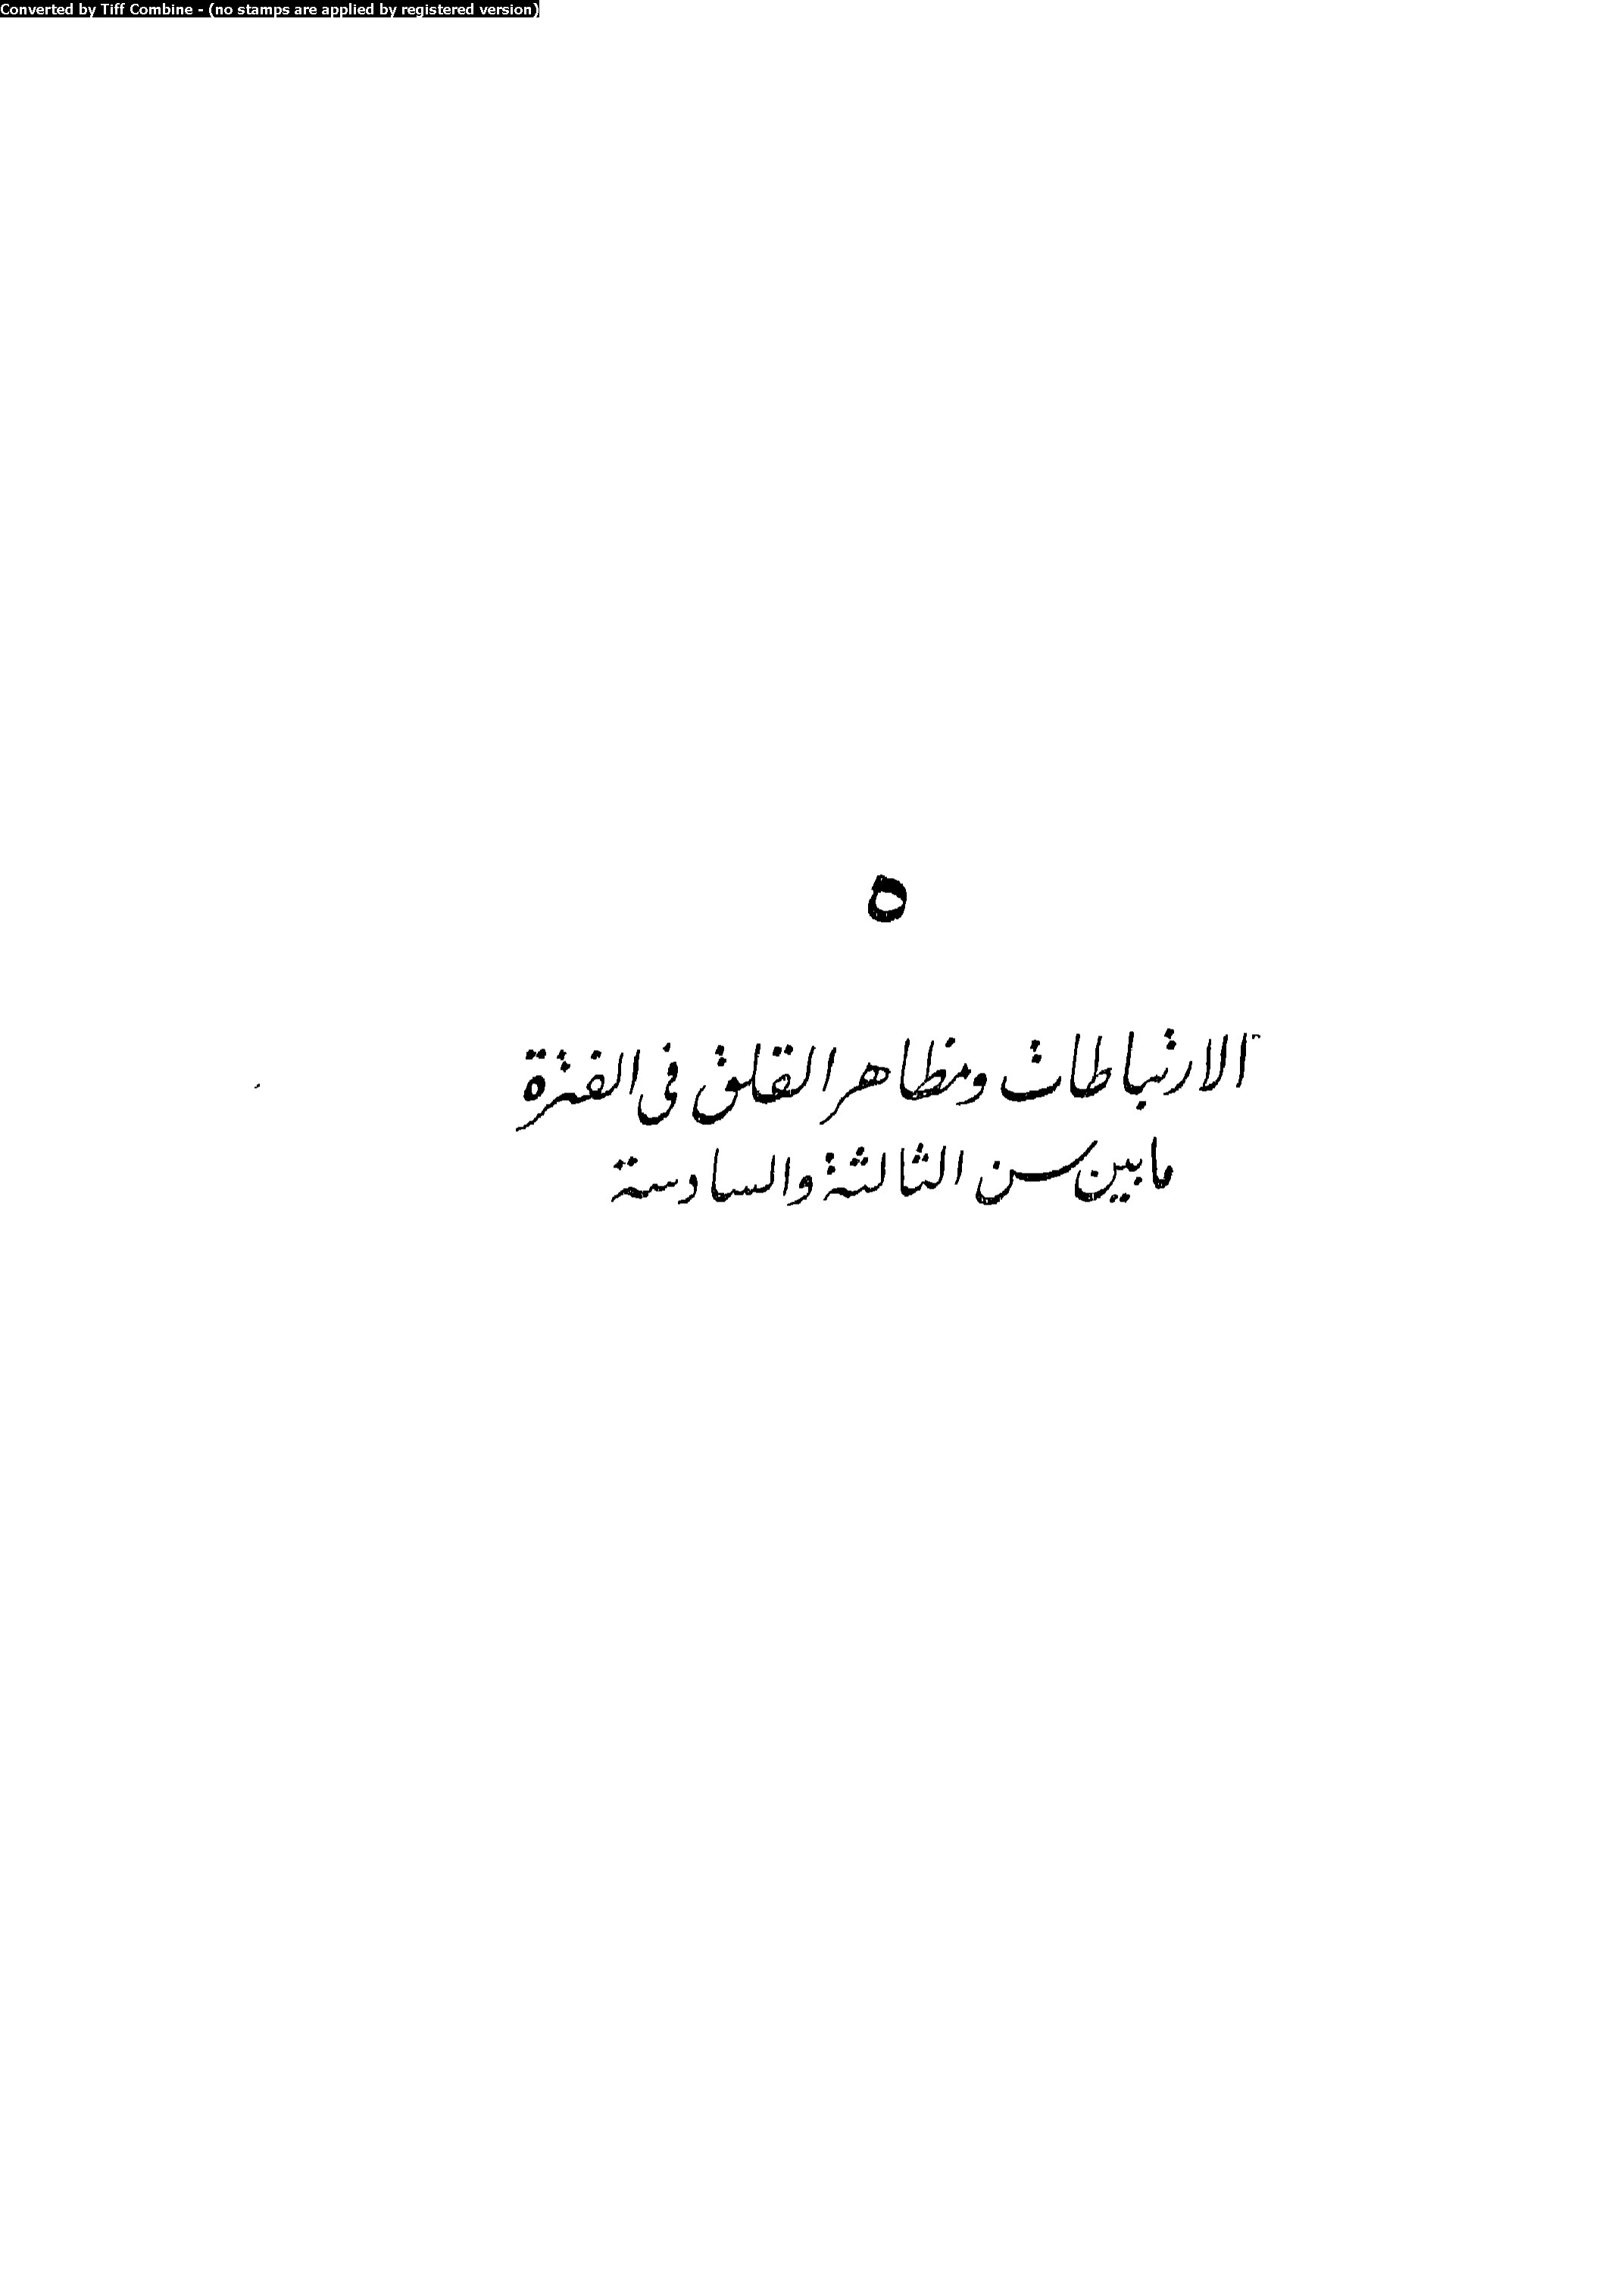 Converted by Tiff Combine - (no stamps are applied by registered version)
٥
الارتباطات ومظاهر القلق فى الفترة
ما بين سن الثالثة والسادسة